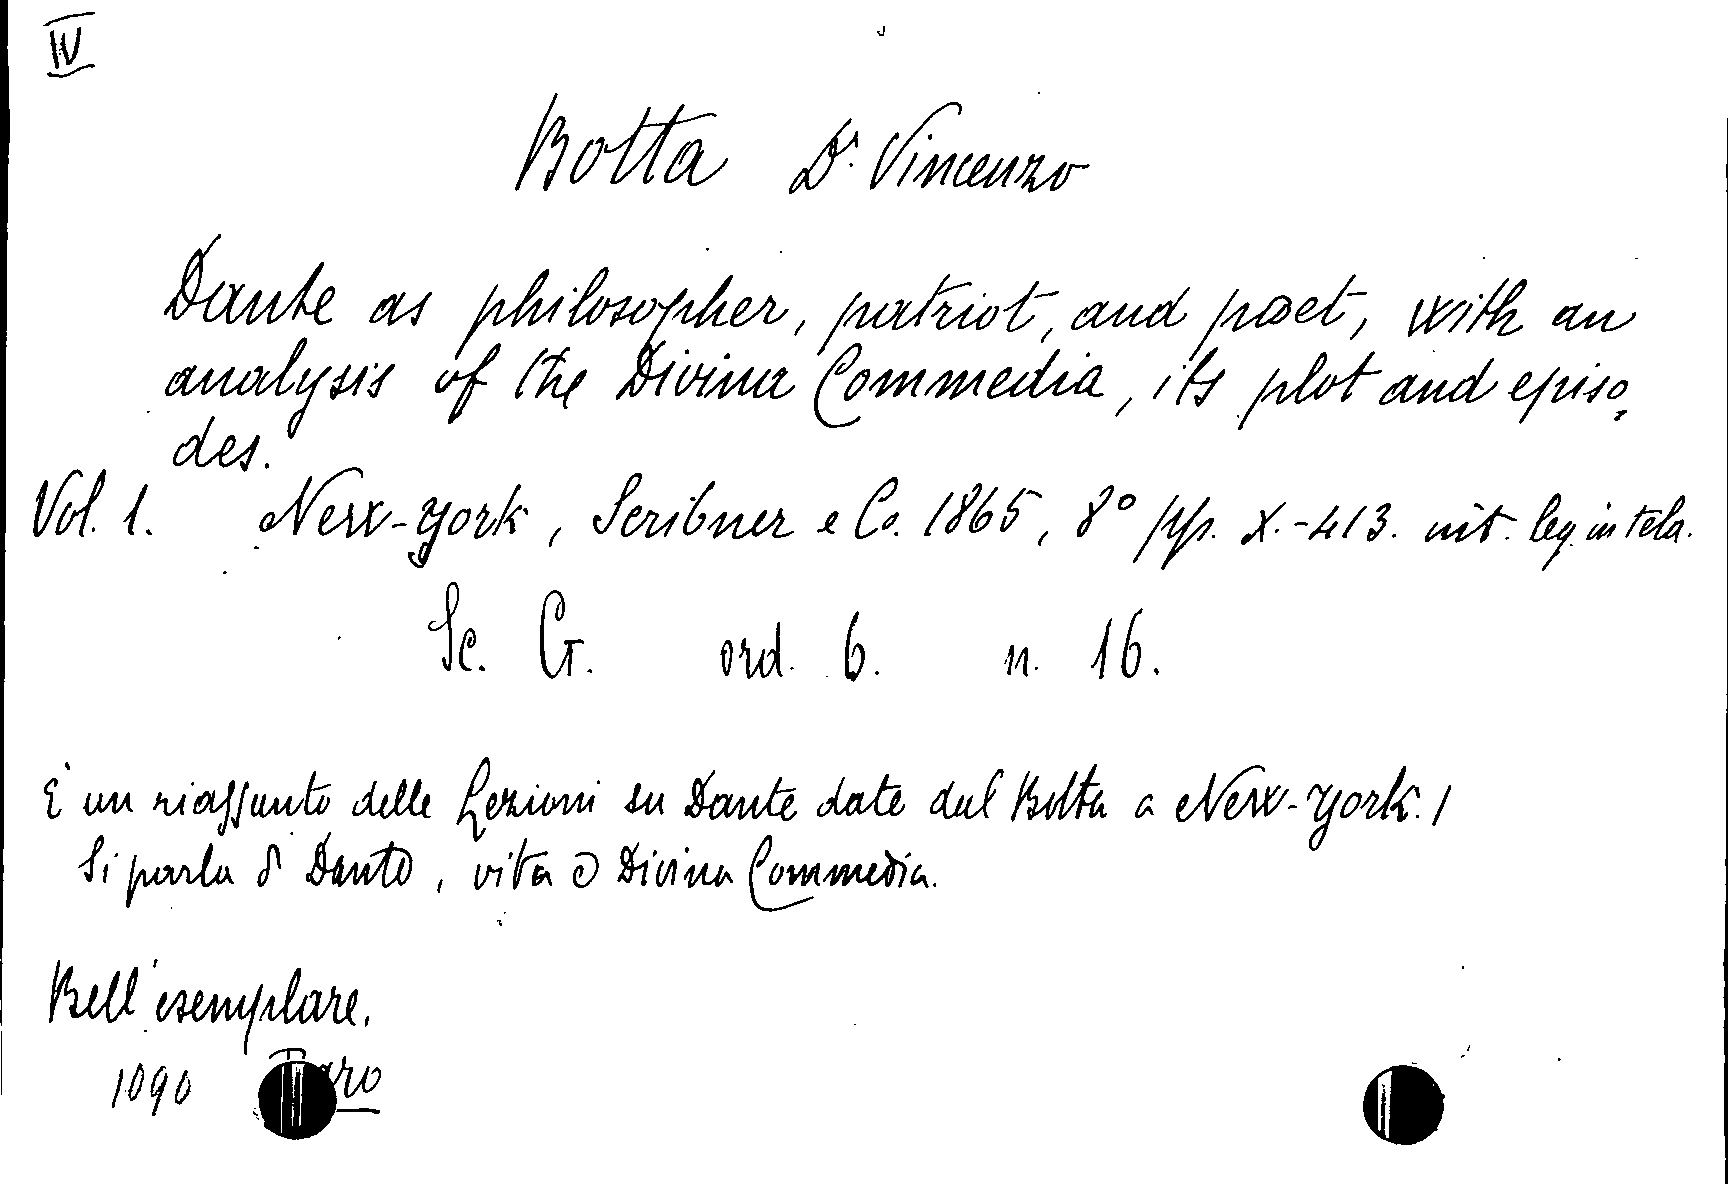 IV
Botta Dr. Vincenzo
Dante as philosopher, patriot, and poet, with an
analysis of the Divina Commedia, its plot and episo=
des.
Vol. 1. New-York, Scribner e Co. 1865, 8° pp. X.-413. int. leg. in tela.
Sc. G. ord. 6. n. 16.
È un riassunto delle Lezioni su Dante date dal Botta a New-York. /
Si parla di Dante, vita e Divina Commedia.
Bell'esemplare.
1090